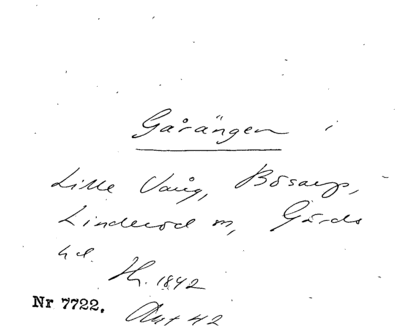 Gårängen i
Lille Vång, Bösarp,
Linderöd sn, Gärds
hd.
Hr. 1842
Nr 7722. Akt 42